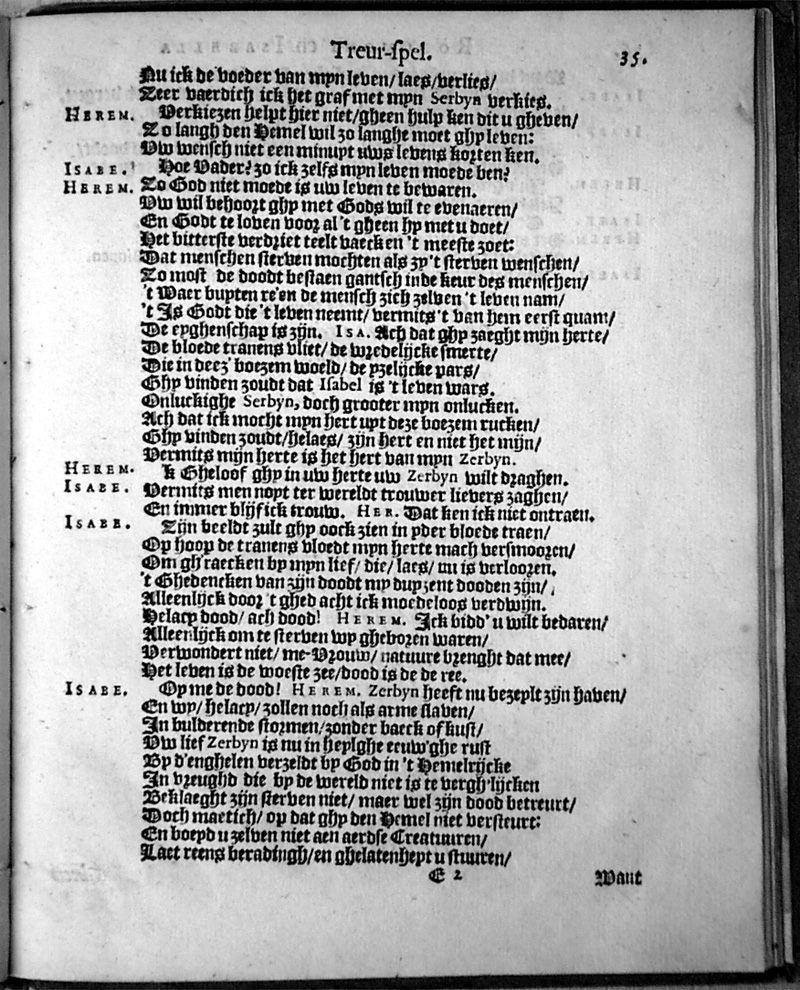 Treur-spel. 35.
Nu ick de voeder van myn leven/ laes/ verlies/
Zeer vaerdich ick het graf met myn Serbyn verkies.
HEREM. Verkiezen helpt hier niet/ gheen hulp ken dit u gheven/
Zo langh den Hemel wil zo langhe moet ghy leven:
Uw wensch niet een minuyt uws levens korten ken.
ISABE. Hoe Vader? zo ick zelfs myn leven moede ben?
HEREM. Zo God niet moede is uw leven te bewaren.
Uw wil behoort ghy met Gods wil te evenaeren/
En Godt te loven voor al 't gheen hy met u doet/
Het bitterste verdriet teelt vaeck en 't meeste zoet:
Dat menschen sterven mochten als zy 't sterven wenschen/
Zo most de doodt bestaen gantsch inde keur des menschen/
't Waer buyten re'en de mensch zich zelven 't leven nam/
't Is Godt die 't leven neemt/ vermits 't van hem eerst quam/
De eyghenschap is zijn. ISA. Ach dat ghy zaeght mijn herte/
De bloede tranens vliet/ de wredelijcke smerte/
Die in deez' boezem woeld/ de yzelijcke pars/
Ghy vinden zoudt dat Isabel is 't leven wars.
Onluckighe Serbyn, doch grooter myn onlucken.
Ach dat ick mocht myn hert uyt deze boezem rucken/
Ghy vinden zoudt/ helaes/ zijn hert en niet het mijn/
Vermits mijn herte is het hert van myn Zerbyn.
HEREM. 'k Gheloof ghy in uw herte uw Zerbyn wilt draghen.
ISABE. Vermits men noyt ter wereldt trouwer lievers zaghen/
En immer blijf ick trouw. HER. Dat ken ick niet ontraen.
ISABE. Zijn beeldt zult ghy oock zien in yder bloede traen/
Op hoop de tranens vloedt myn herte mach versmooren/
Om gh'raecken by myn lief/ die/ laes/ nu is verlooren.
't Ghedencken van zijn doodt my duyzent dooden zijn/
Alleenlijck door 't ghedacht ick moedeloos verdwijn.
Helacy dood/ ach dood! HEREM. Ick bidd' u wilt bedaren/
Alleenlijck om te sterven wy gheboren waren/
Verwondert niet/ me-Vrouw/ natuure brenght dat mee/
Het leven is de woeste zee/ dood is de de ree.
ISABE. Op me de dood! HEREM. Zerbyn heeft nu bezeylt zijn haven/
En wy/ helacy/ zollen noch als arme slaven/
In bulderende stormen/ zonder baeck of kust/
Uw lief Zerbyn is nu in heylghe eeuw'ghe rust
By d'enghelen verzeldt by God in 't Hemelrijcke
In vreughd die by de wereld niet is te vergh'lijcken
Beklaeght zijn sterven niet/ maer wel zijn dood betreurt/
Doch maetich/ op dat ghy den Hemel niet versteurt:
En boeyd u zelven niet aen aerdse Creatuuren/
Laet reens beradingh/ en ghelatenheyt u stuuren/
E 2 Want